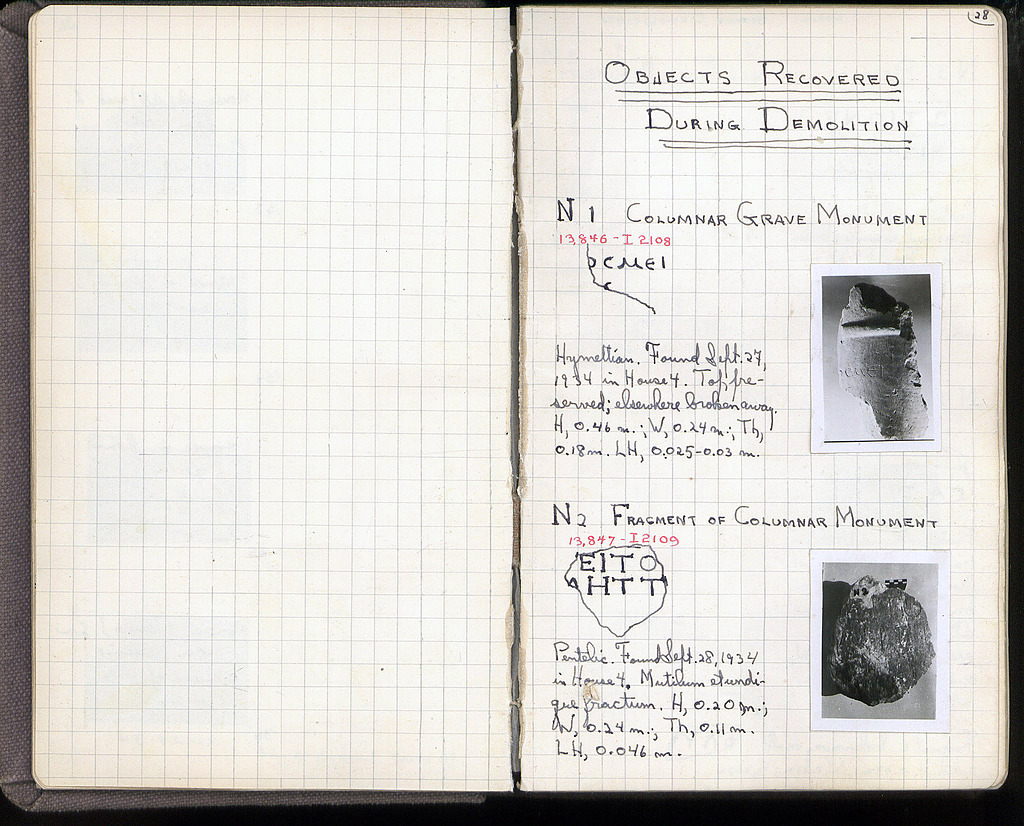 28
OBJECTS RECOVERED
DURING DEMOLITION
N 1 COLUMNAR GRAVE MONUMENT
13,846 - I 2108
CMEI
Hymettian. Found Sept. 27,
1934 in House 4. Top pre-
served; elsewhere broken away.
H, 0.46 m.; W, 0.24 m.; Th,
0.18 m. LH, 0.025-0.03 m.
N 2 FRAGMENT OF COLUMNAR MONUMENT
13,847 - I 2109
EITO
HTT
N 2
Pentelic. Found Sept. 28, 1934
in House 4. Mutilum et undi-
que fractum. H, 0.20 m.;
W, 0.24 m.; Th, 0.11 m.
LH, 0.046 m.